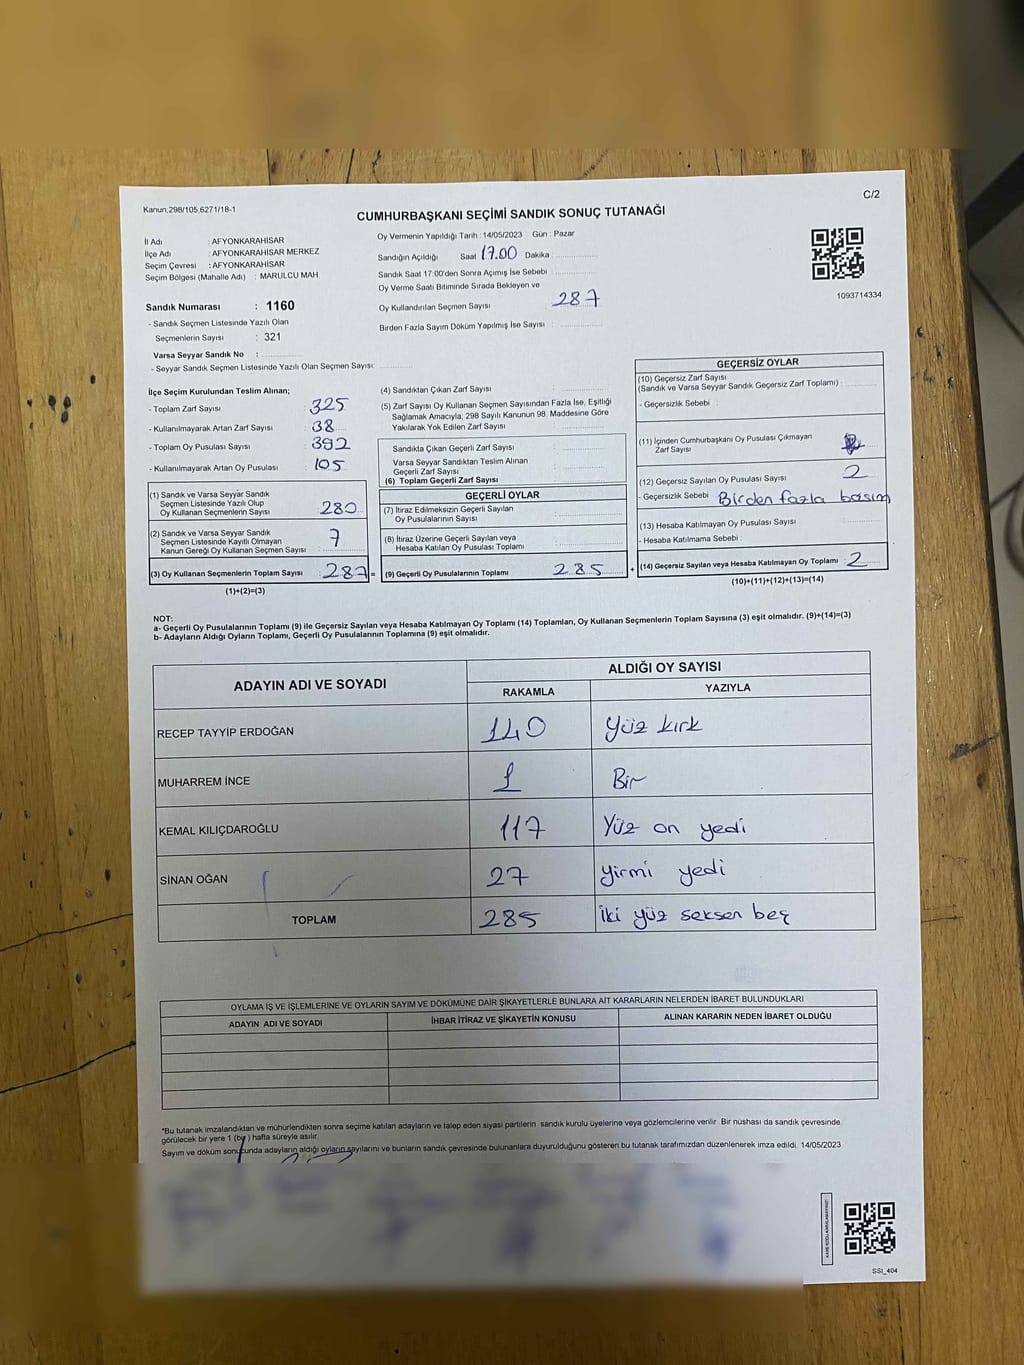 Kanun,298/105,6271/18-1
C/2
CUMHURBAŞKANI SEÇİMİ SANDIK SONUÇ TUTANAĞI
İl Adı : AFYONKARAHİSAR
İlçe Adı : AFYONKARAHİSAR MERKEZ
Seçim Çevresi : AFYONKARAHİSAR
Seçim Bölgesi (Mahalle Adı) : MARULCU MAH.
Sandık Numarası : 1160
- Sandık Seçmen Listesinde Yazılı Olan
Seçmenlerin Sayısı : 321
Varsa Seyyar Sandık No :
- Seyyar Sandık Seçmen Listesinde Yazılı Olan Seçmen Sayısı:
Oy Vermenin Yapıldığı Tarih : 14/05/2023 Gün : Pazar
Sandığın Açıldığı Saat 17.00 Dakika
Sandık Saat 17:00'den Sonra Açımış İse Sebebi :
Oy Verme Saati Bitiminde Sırada Bekleyen ve
Oy Kullandırılan Seçmen Sayısı 287
Birden Fazla Sayım Döküm Yapılmış İse Sayısı :
1093714334
İlçe Seçim Kurulundan Teslim Alınan;
- Toplam Zarf Sayısı : 325
- Kullanılmayarak Artan Zarf Sayısı : 38
- Toplam Oy Pusulası Sayısı : 392
- Kullanılmayarak Artan Oy Pusulası : 105
(1) Sandık ve Varsa Seyyar Sandık
Seçmen Listesinde Yazılı Olup
Oy Kullanan Seçmenlerin Sayısı : 280
(2) Sandık ve Varsa Seyyar Sandık
Seçmen Listesinde Kayıtlı Olmayan
Kanun Gereği Oy Kullanan Seçmen Sayısı : 7
(3) Oy Kullanan Seçmenlerin Toplam Sayısı : 287 =
(1)+(2)=(3)
(4) Sandıktan Çıkan Zarf Sayısı :
(5) Zarf Sayısı Oy Kullanan Seçmen Sayısından Fazla İse, Eşitliği
Sağlamak Amacıyla; 298 Sayılı Kanunun 98. Maddesine Göre
Yakılarak Yok Edilen Zarf Sayısı :
Sandıkta Çıkan Geçerli Zarf Sayısı :
Varsa Seyyar Sandıktan Teslim Alınan
Geçerli Zarf Sayısı :
(6) Toplam Geçerli Zarf Sayısı :
GEÇERLİ OYLAR
(7) İtiraz Edilmeksizin Geçerli Sayılan
Oy Pusulalarının Sayısı :
(8) İtiraz Üzerine Geçerli Sayılan veya
Hesaba Katılan Oy Pusulası Toplamı :
(9) Geçerli Oy Pusulalarının Toplamı : 285 +
GEÇERSİZ OYLAR
(10) Geçersiz Zarf Sayısı
(Sandık ve Varsa Seyyar Sandık Geçersiz Zarf Toplamı) :
- Geçersizlik Sebebi :
(11) İçinden Cumhurbaşkanı Oy Pusulası Çıkmayan
Zarf Sayısı :
(12) Geçersiz Sayılan Oy Pusulası Sayısı : 2
- Geçersizlik Sebebi : Birden fazla basım
(13) Hesaba Katılmayan Oy Pusulası Sayısı :
- Hesaba Katılmama Sebebi :
(14) Geçersiz Sayılan veya Hesaba Katılmayan Oy Toplamı : 2
(10)+(11)+(12)+(13)=(14)
NOT:
a- Geçerli Oy Pusulalarının Toplamı (9) ile Geçersiz Sayılan veya Hesaba Katılmayan Oy Toplamı (14) Toplamları, Oy Kullanan Seçmenlerin Toplam Sayısına (3) eşit olmalıdır. (9)+(14)=(3)
b- Adayların Aldığı Oyların Toplamı, Geçerli Oy Pusulalarının Toplamına (9) eşit olmalıdır.
ADAYIN ADI VE SOYADI
ALDIĞI OY SAYISI
RAKAMLA YAZIYLA
RECEP TAYYİP ERDOĞAN 140 Yüz kırk
MUHARREM İNCE 1 Bir
KEMAL KILIÇDAROĞLU 117 Yüz on yedi
SİNAN OĞAN 27 yirmi yedi
TOPLAM 285 İki yüz seksen beş
OYLAMA İŞ VE İŞLEMLERİNE VE OYLARIN SAYIM VE DÖKÜMÜNE DAİR ŞİKAYETLERLE BUNLARA AİT KARARLARIN NELERDEN İBARET BULUNDUKLARI
ADAYIN ADI VE SOYADI İHBAR İTİRAZ VE ŞİKAYETİN KONUSU ALINAN KARARIN NEDEN İBARET OLDUĞU
*Bu tutanak imzalandıktan ve mühürlendikten sonra seçime katılan adayların ve talep eden siyasi partilerin sandık kurulu üyelerine veya gözlemcilerine verilir. Bir nüshası da sandık çevresinde
görülecek bir yere 1 (bir) hafta süreyle asılır.
Sayım ve döküm sonucunda adayların aldığı oyların sayılarını ve bunların sandık çevresinde bulunanlara duyurulduğunu gösteren bu tutanak tarafımızdan düzenlenerek imza edildi. 14/05/2023
SSİ_404